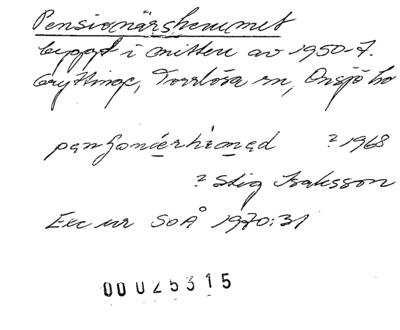 Pensionärshemmet
byggt i mitten av 1950-t.
Gryttinge, Torrlösa sn, Onsjö hd
panʃonérhèmad ? 1968
? Stig Isaksson
Exc ur SOÅ 1970:31
00025315